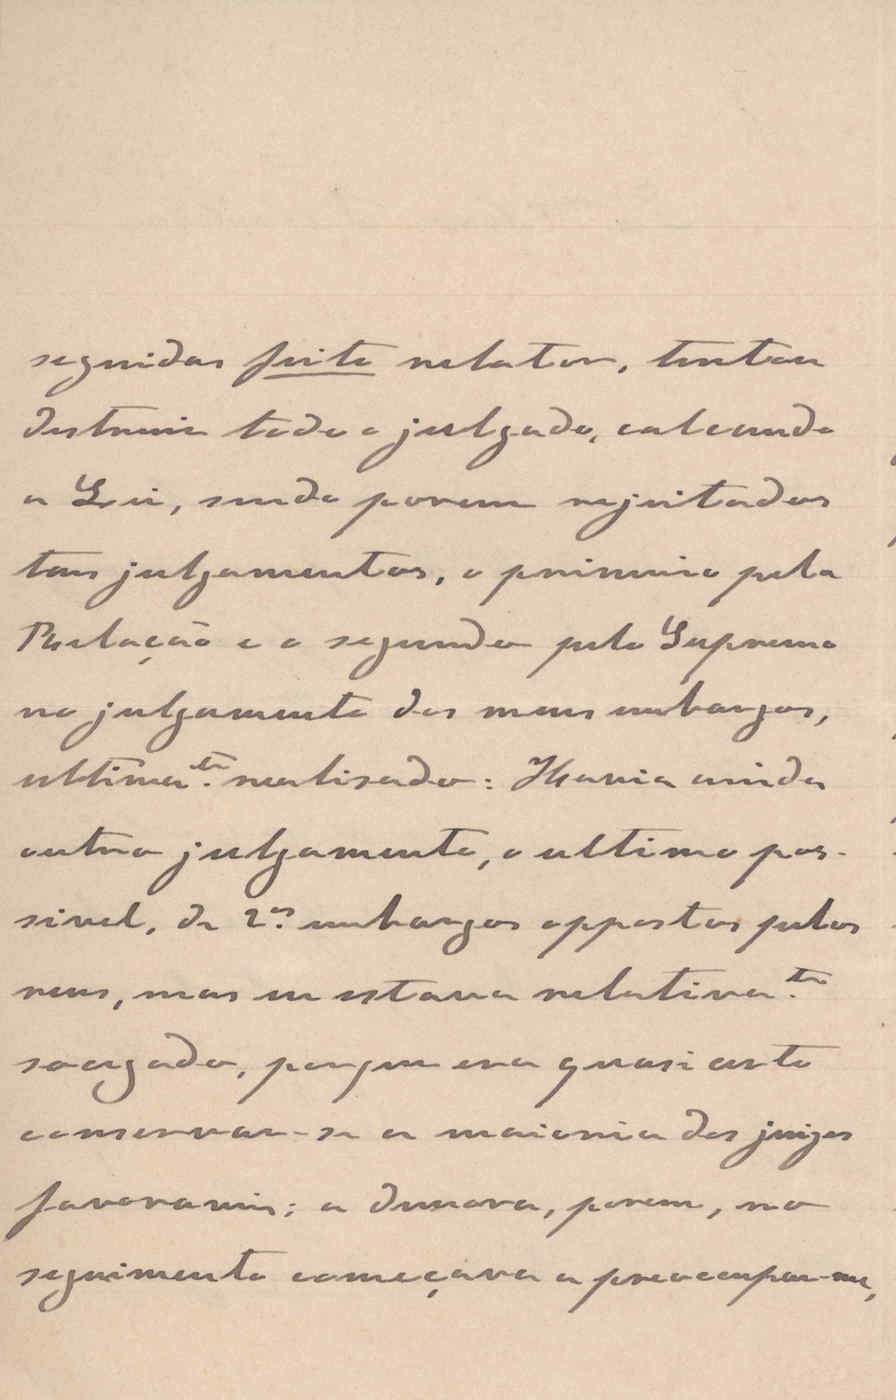 seguidas feito relator, tentou
destruir todo o julgado, calcando
a Lei, sendo porem rejeitados
taes julgamentos, o primeiro pela
Relação e o segundo pelo Supremo
no julgamento dos meus embargos,
ultima.te realisado: Havia ainda
outro julgamento, o ultimo pos-
sivel, de 2.os embargos oppostos pelos
reus, mas eu estava relativa.te
socegado, porque era quasi certo
conservar-se a maioria dos juizes
favoraveis; a demora, porem, no
seguimento começava a preoccupar-me,